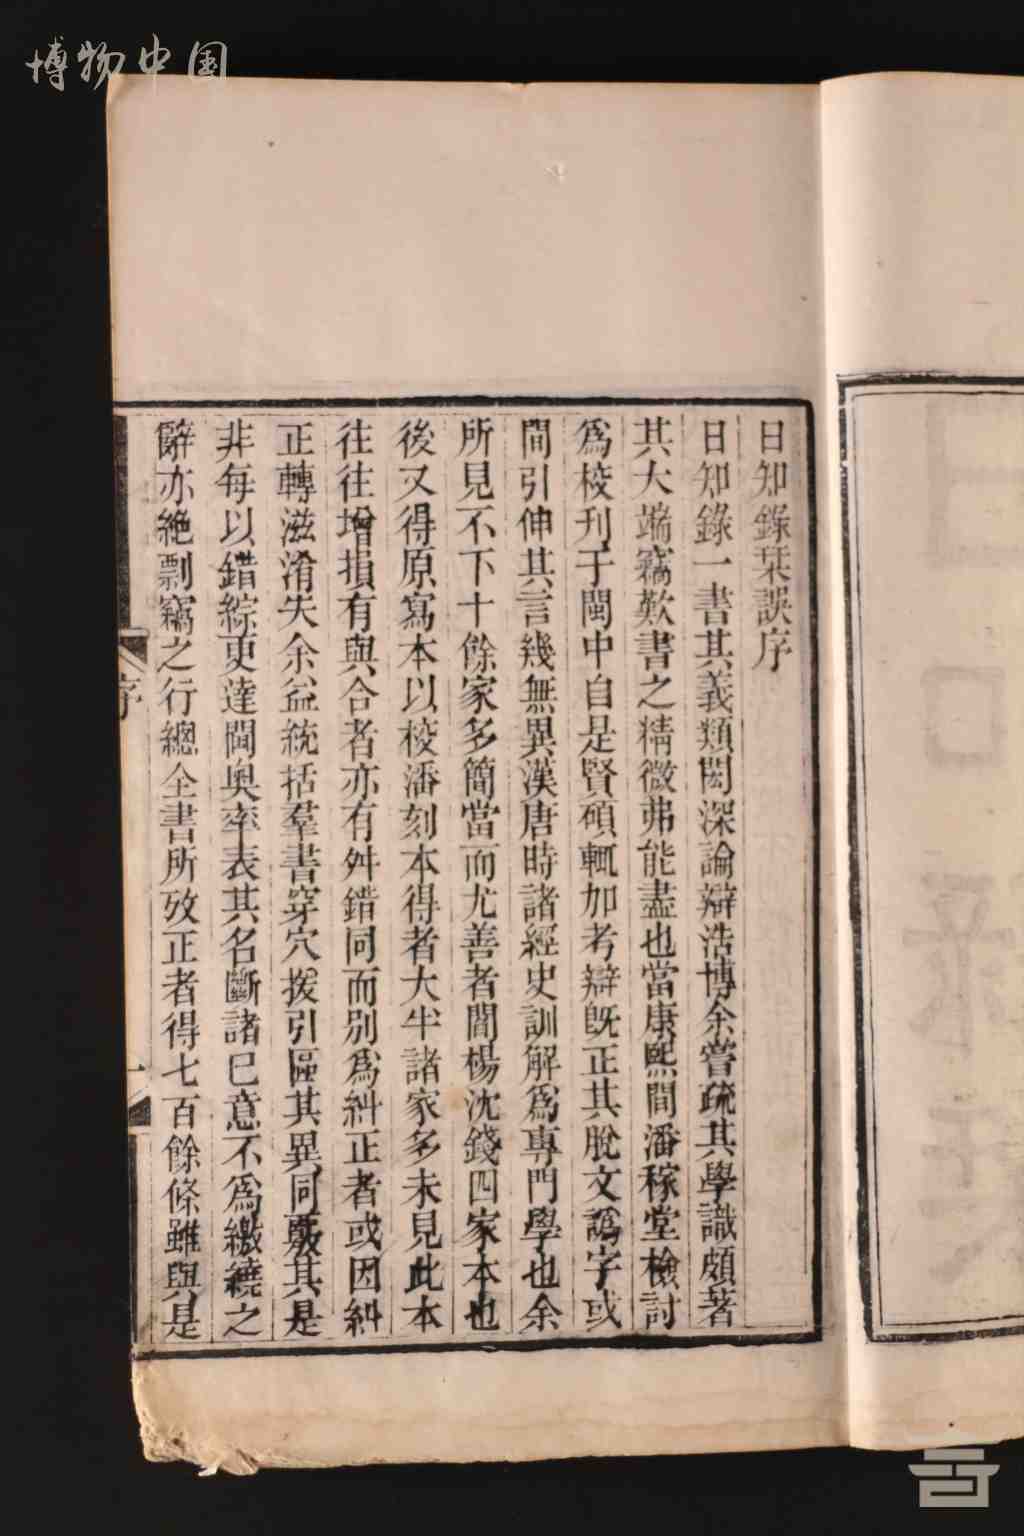 博物中国
日知錄栞誤序
日知錄一書其義類閎深論辯浩博余嘗疏其學識頗著
其大端竊歎書之精微弗能盡也當康熙間潘稼堂檢討
爲校刊于閩中自是賢碩輒加考辯既正其脫文譌字或
間引伸其言幾無異漢唐時諸經史訓解爲專門學也余
所見不下十餘家多簡當而尤善者閻楊沈錢四家本也
後又得原寫本以校潘刻本得者大半諸家多未見此本
往往增損有與合者亦有舛錯同而別爲糾正者或因糾
正轉滋淆失余益統括羣書穿穴援引區其異同覈其是
非每以錯綜更達閫奧率表其名斷諸己意不爲繳繞之
辭亦絶剽竊之行總全書所攷正者得七百餘條雖與是
序
一